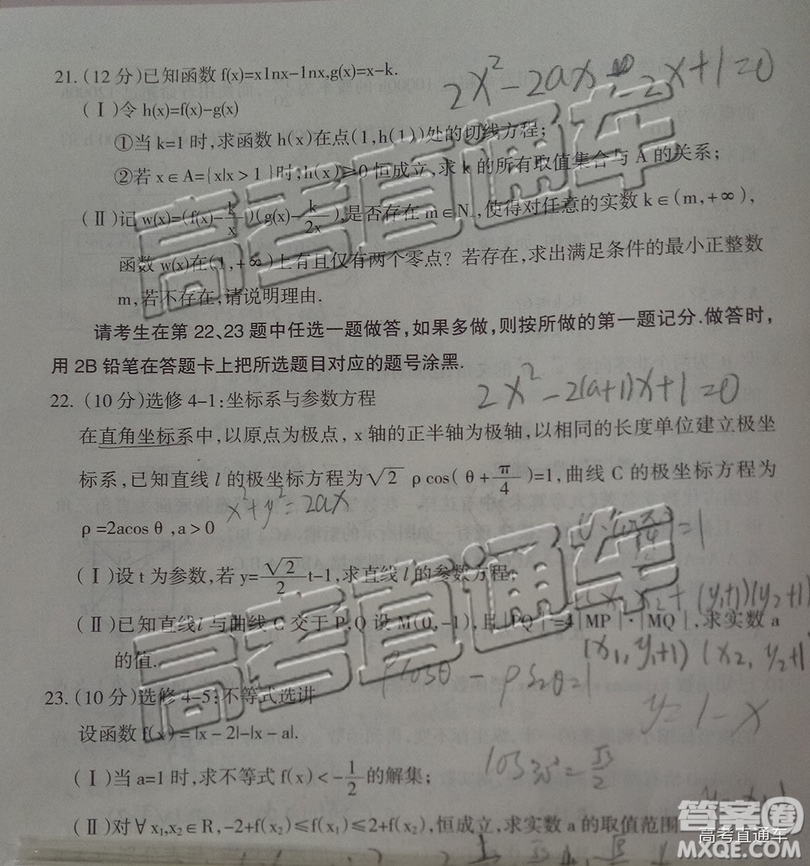 21.(12分)已知函数f(x)=xlnx-lnx,g(x)=x-k.
2x²-2ax-2x+1=0
(Ⅰ)令h(x)=f(x)-g(x)
①当k=1时,求函数h(x)在点(1,h(1))处的切线方程;
②若x∈A={x|x>1}时,h(x)>0恒成立,求k的所有取值集合与A的关系;
(Ⅱ)记w(x)=(f(x)-k/x)(g(x)-k/2x),是否存在m∈N,使得对任意的实数k∈(m,+∞),
函数w(x)在(1,+∞)上有且仅有两个零点？若存在,求出满足条件的最小正整数
m,若不存在,请说明理由.
请考生在第22、23题中任选一题做答,如果多做,则按所做的第一题记分.做答时,
用2B铅笔在答题卡上把所选题目对应的题号涂黑.
22.(10分)选修4-1:坐标系与参数方程
2x²-2(a+1)x+1=0
在直角坐标系中,以原点为极点,x轴的正半轴为极轴,以相同的长度单位建立极坐
标系,已知直线l的极坐标方程为√2 ρcos(θ+π/4)=1,曲线C的极坐标方程为
ρ=2acosθ,a>0
x²+y²=2ax
(Ⅰ)设t为参数,若y=√2/2 t-1,求直线l的参数方程;
x₂+(y₁+1)(y₂+1)
(Ⅱ)已知直线l与曲线C交于P,Q设M(0,-1),且|PQ|²=4|MP|·|MQ|,求实数a
的值.
(x₁,y₁+1)(x₂,y₂+1
23.(10分)选修4-5:不等式选讲
y=1-x
设函数f(x)=|x-2|-|x-a|.
(Ⅰ)当a=1时,求不等式f(x)<-1/2的解集;
(Ⅱ)对∀x₁,x₂∈R,-2+f(x₂)≤f(x₁)≤2+f(x₂),恒成立,求实数a的取值范围
高考直通车
高考直通车
答案圈
MXQE.COM
高考直通车